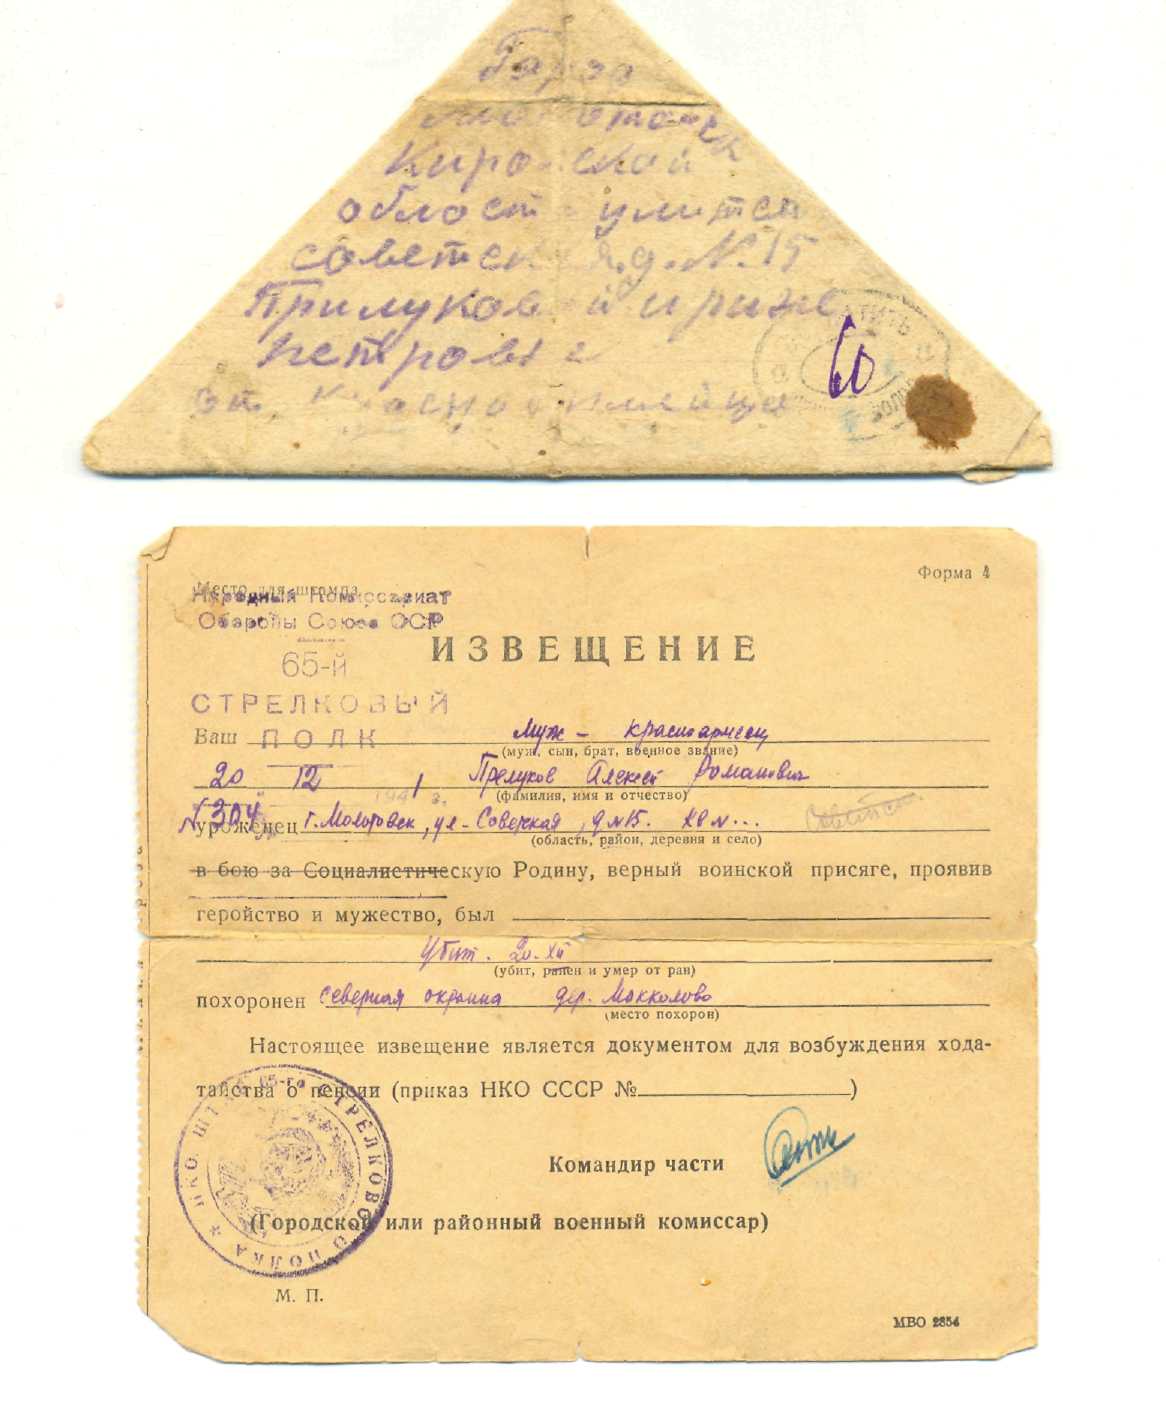 Кировской
област улитса
советск я.д. N. 15
Прилуков й ирине
петровне
от Красноармейца
60
Форма 4
Место для штампа
Народный Комиссариат
Обороны Союза ССР
ИЗВЕЩЕНИЕ
65-й
СТРЕЛКОВЫЙ
ПОЛК
Ваш муж - красноармеец
(муж, сын, брат, военное звание)
20 12 194 1 г. Прелуков Алексей Романович
(фамилия, имя и отчество)
N 304
уроженец г. Молотовск, ул - Советская, д N 15.
(область, район, деревня и село)
в бою за Социалистическую Родину, верный воинской присяге, проявив
геройство и мужество, был
Убит. 20. XII
(убит, ранен и умер от ран)
похоронен северная окраина дер. Мокколово
(место похорон)
Настоящее извещение является документом для возбуждения хода-
тайства о пенсии (приказ НКО СССР № )
Командир части
(Городской или районный военный комиссар)
НКО. ШТАБ 65-го СТРЕЛКОВОГО ПОЛКА *
М. П.
МВО 2854